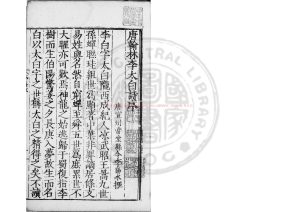 唐翰林李太白詩序
宣州當塗縣令李陽冰撰
李白字太白隴西成紀人涼武昭王暠九世
孫蟬聯珪組世為顯著中葉非罪謫居條支
易姓與名然自窮蟬至舜五世為庶累世不
大曜亦可歎焉神龍之始逃歸于蜀復指李
樹而生伯陽驚姜之夕長庚入夢故生而名
白以太白字之世稱太白之精得之矣不讀